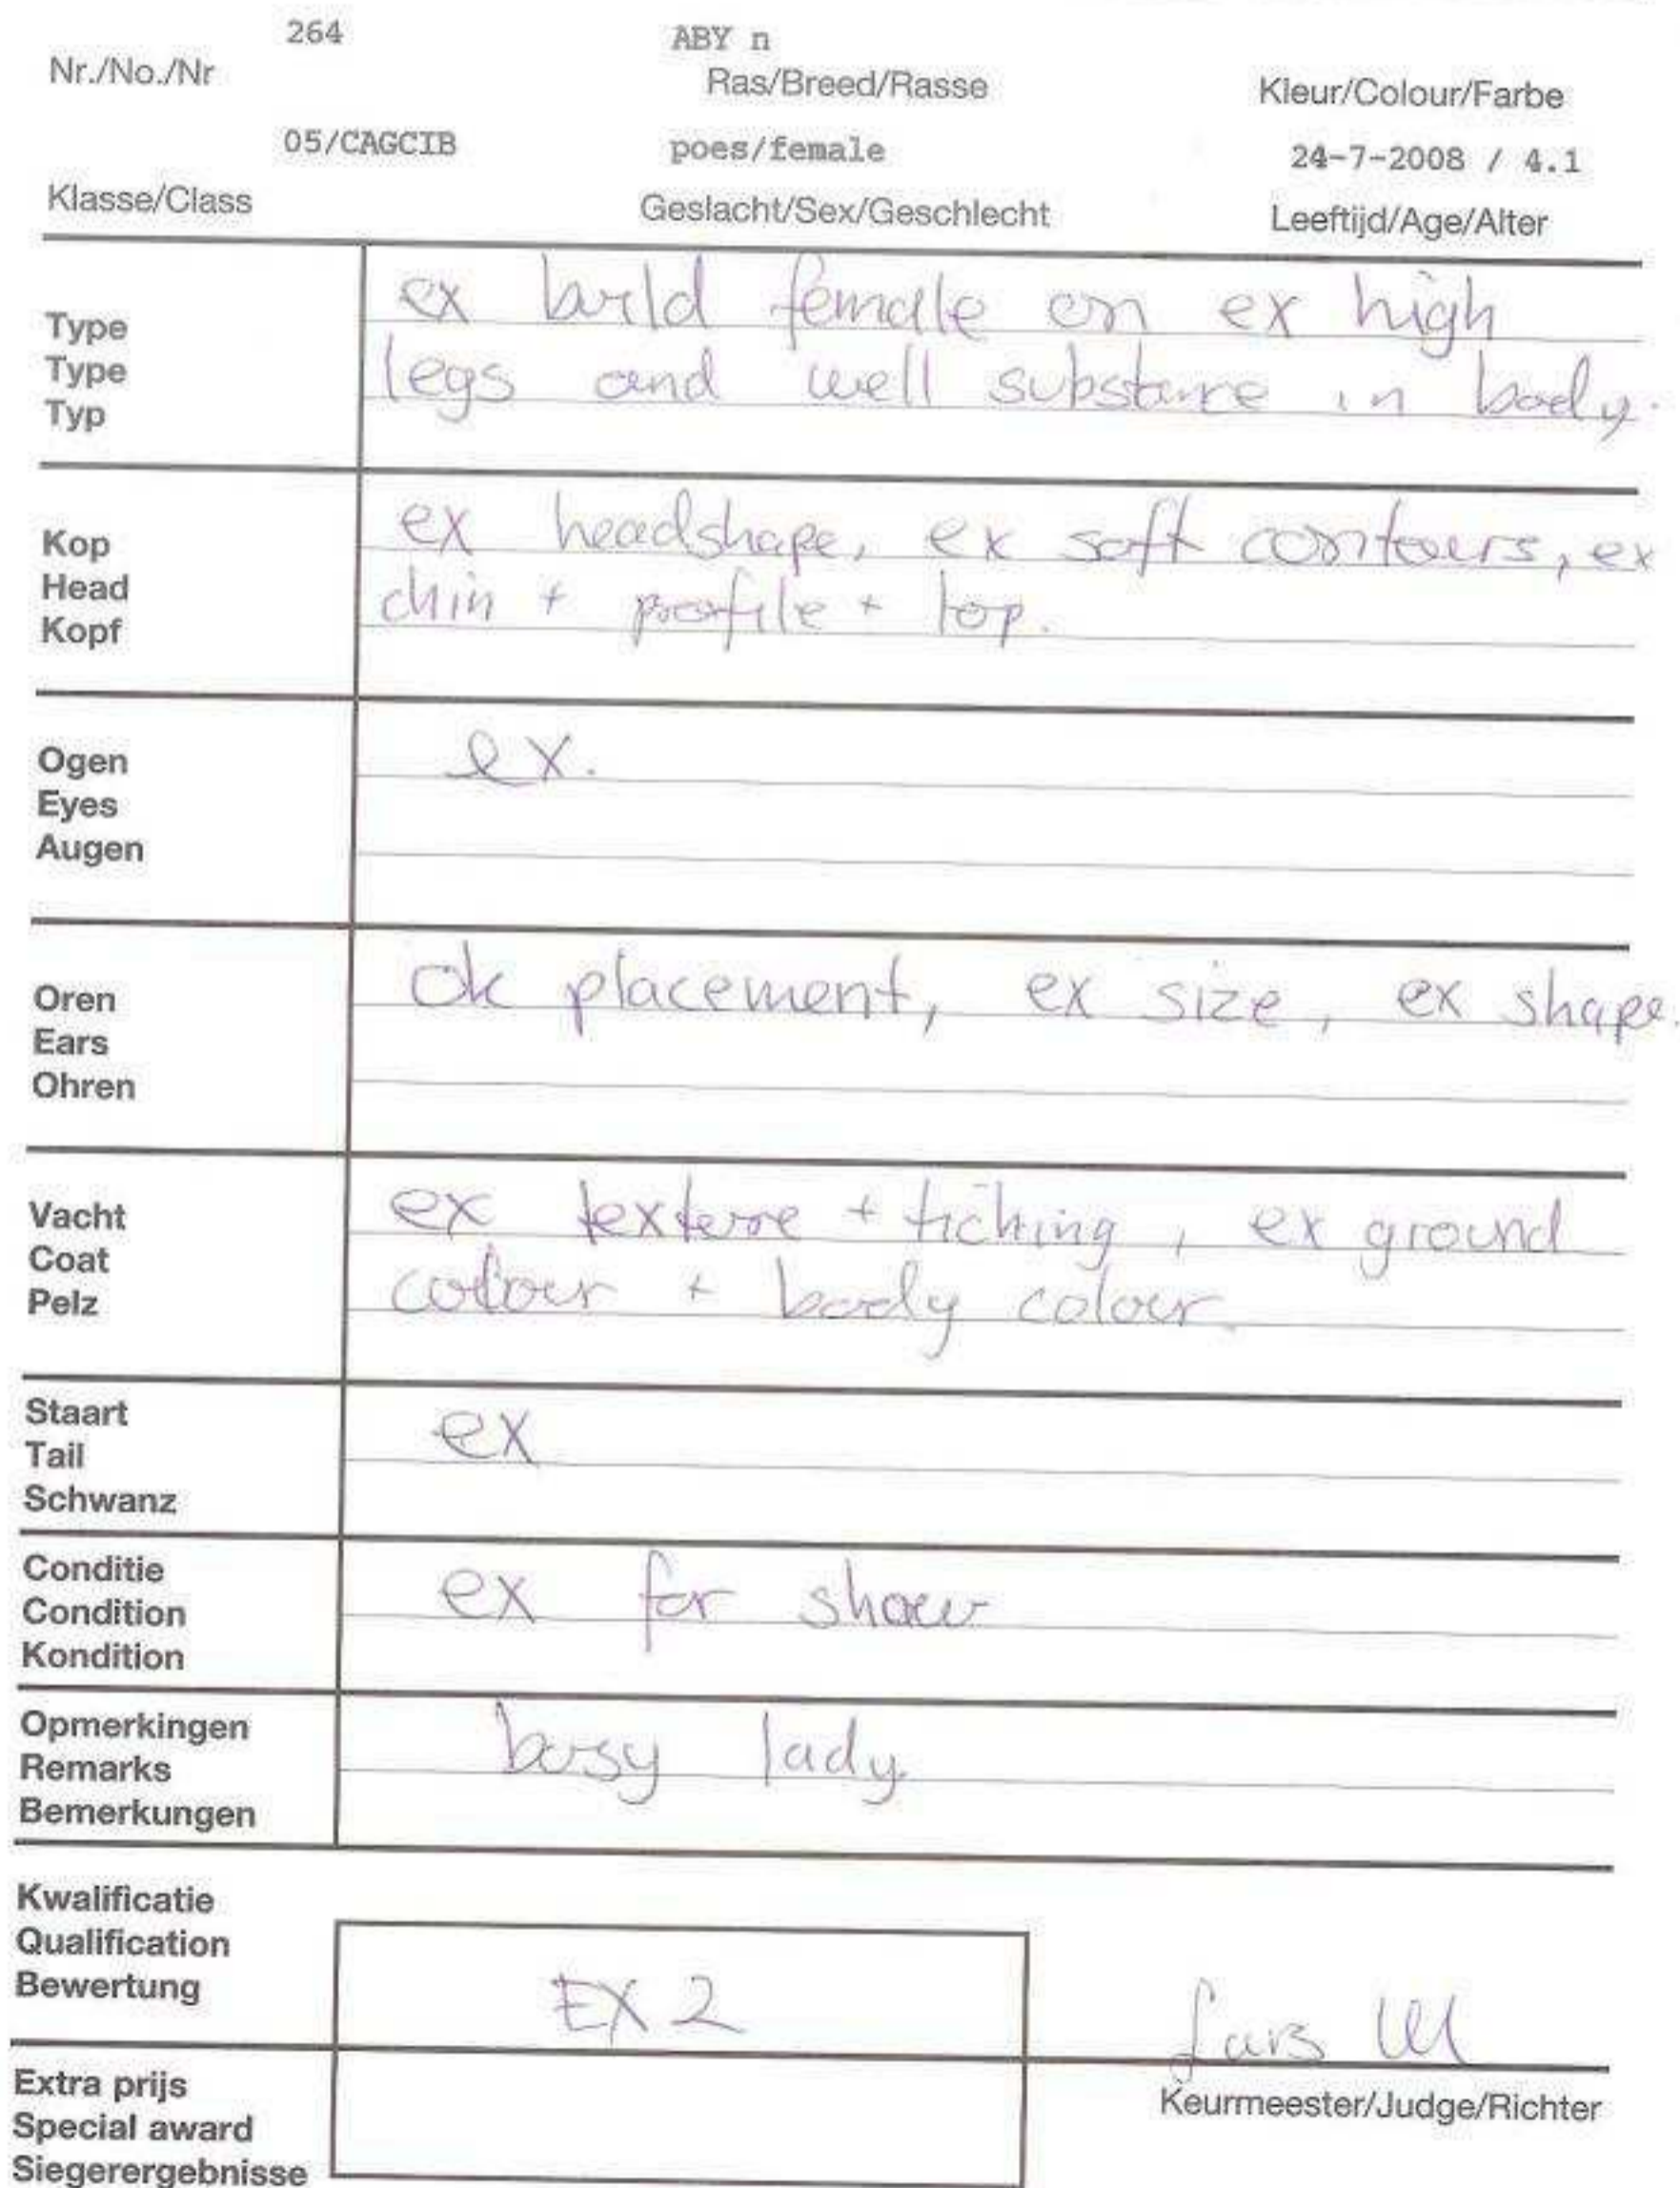 264 ABY n
Nr./No./Nr Ras/Breed/Rasse Kleur/Colour/Farbe
05/CAGCIB poes/female 24-7-2008 / 4.1
Klasse/Class Geslacht/Sex/Geschlecht Leeftijd/Age/Alter
Type
Type
Typ
ex build female on ex high
legs and well substance in body.
Kop
Head
Kopf
ex headshape, ex soft contours, ex
chin + profile + top.
Ogen
Eyes
Augen
ex.
Oren
Ears
Ohren
ok placement, ex size, ex shape.
Vacht
Coat
Pelz
ex texture + ticking, ex ground
colour + body colour.
Staart
Tail
Schwanz
ex
Conditie
Condition
Kondition
ex for show
Opmerkingen
Remarks
Bemerkungen
busy lady
Kwalificatie
Qualification
Bewertung
EX 2
Lars
Keurmeester/Judge/Richter
Extra prijs
Special award
Siegerergebnisse